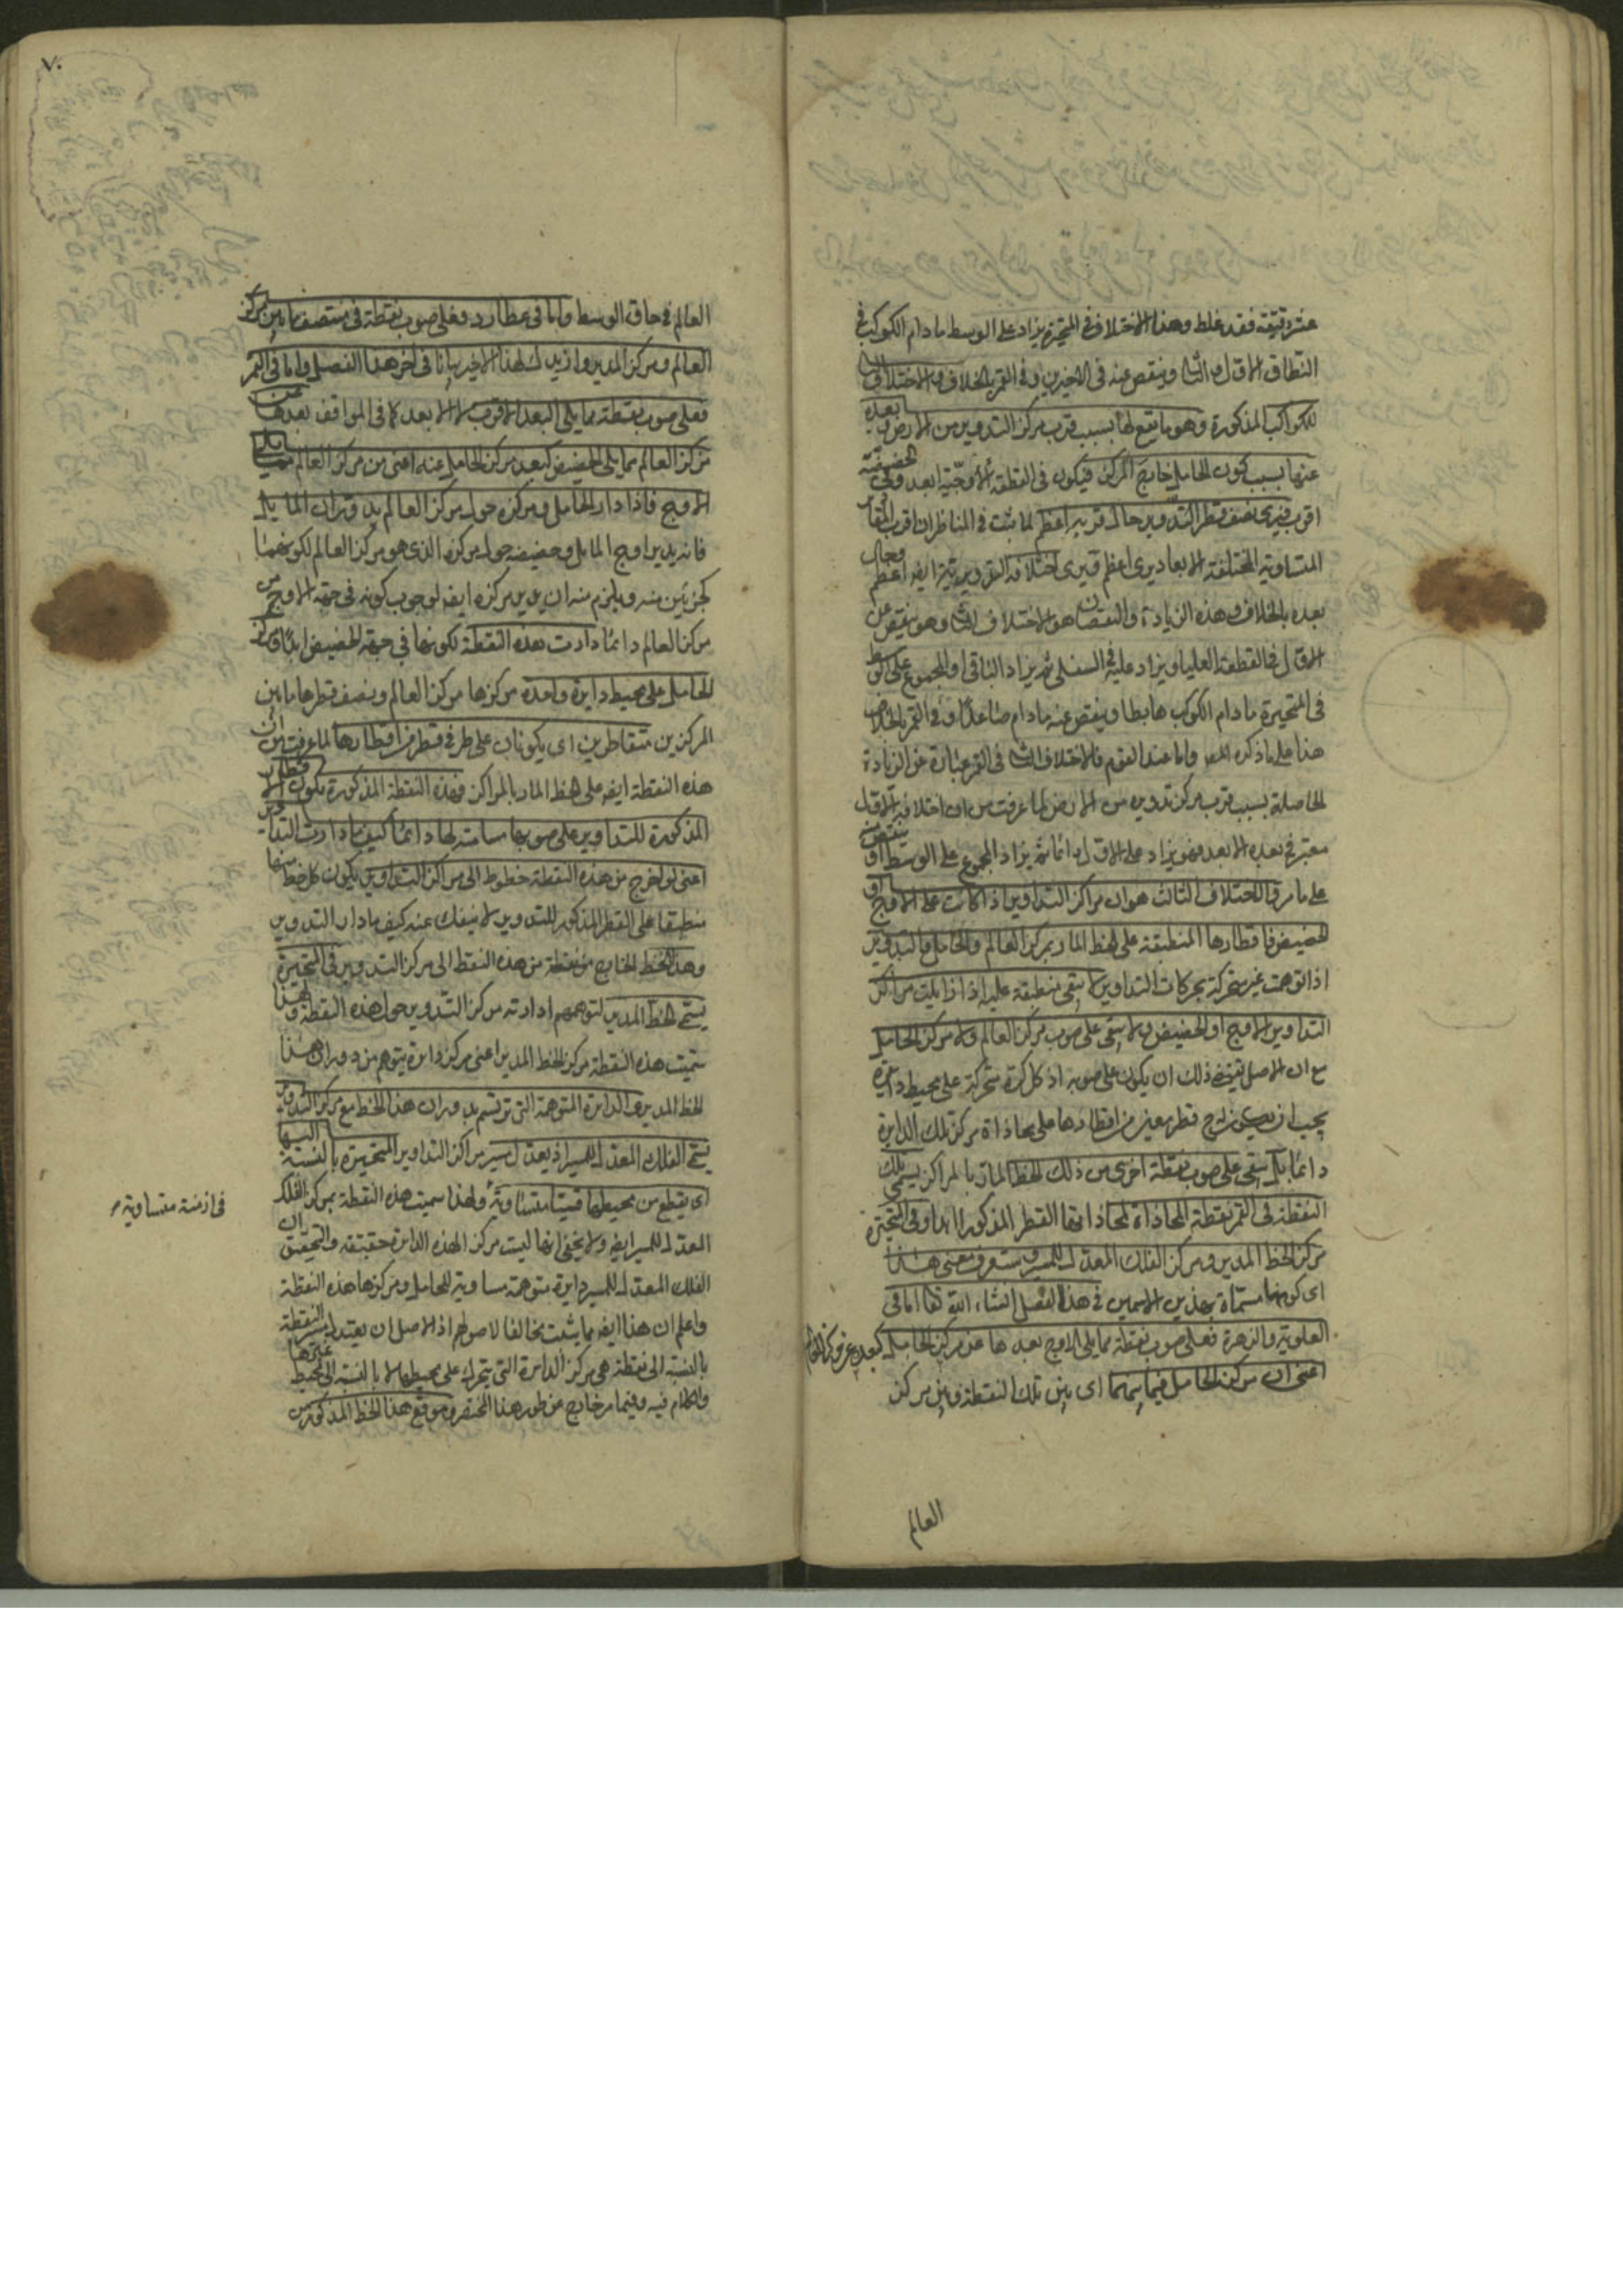 عشر دقيقة فقد غلط وهذا الاختلاف في المتحيرة يزاد على الوسط ما دام الكوكب في
النطاق الاول والثانى وينقص عنه فى الاخيرين وفى القمر بالخلاف والاختلاف الثانى
للكواكب المذكورة وهو ما يقع لها بسبب قرب مركز التدوير من الارض وبعده
عنها بسبب كون الحامل خارج المركز فيكون فى القطعة الاوجية ابعد وفى الحضيضية
اقرب فيرى نصف قطر التدوير حال قربه اعظم لما ثبت فى المناظر ان اقرب المقادير
المتساوية المختلفة الابعاد يرى اعظم فيرى اختلافه ايضا اعظم وحال
بعده بالخلاف وهذه الزيادة والنقصان هو الاختلاف الثانى وهو ينقص عن
الاول فى القطعة العليا ويزاد عليه فى السفلى ثم يزاد الباقى او المجموع على الوسط
فى المتحيرة ما دام الكوكب هابطا وينقص عنه ما دام صاعدا وفى القمر بالخلاف
هذا على ما ذكره المص واما عند القوم فالاختلاف الثانى فى القمر عبارة عن الزيادة
الحاصلة بسبب قرب مركز تدويره من الارض لما عرفت من ان اختلافه الاول
معتبر فى بعده الابعد فهو يزاد على الاول دائما ثم يزاد المجموع على الوسط او ينقص منه
على ما مر والاختلاف الثالث هو ان مراكز التداوير اذا كانت على الاوج او
الحضيض فاقطارها المنطبقة على الخط المار بمركز العالم والحامل والتدوير
اذا توهمت غير متحركة بحركات التداوير لا تبقى منطبقة عليه اذا زايلت مراكز
التداوير الاوج او الحضيض ولا تبقى على صوب مركز العالم ولا مركز الحامل
مع ان الاصل يقتضى ذلك ان يكون على صوبه اذ كل كرة متحركة على محيط دائرة
يجب ان يكون قطر معين من اقطارها على محاذاة مركز تلك الدايرة
دائما بل تبقى على صوب نقطة اخرى من ذلك الخط المار بالمراكز يسمى تلك
النقطة فى القمر نقطة المحاذاة لمحاذاتها القطر المذكور ابدا وفى المتحيرة
مركز الخط المدير ومركز الفلك المعدل للمسير وستعرف معنى هذا
اى كونها مسماة بهذين الاسمين فى هذا الفصل انشاء الله تعالى اما فى
العلوية والزهرة فعلى صوب نقطة مما يلى الاوج بعدها عن مركز الحامل كبعده عن مركز العالم
اعنى ان مركز الحامل فيما بينهما اى بين تلك النقطة وبين مركز
العالم
٧٠
العالم فى حاق الوسط واما فى عطارد فعلى صوب نقطة فى منتصف ما بين مركز
العالم ومركز المدير وازيدك لهذا الاخير بيانا فى اخر هذا الفصل واما فى القمر
فعلى صوب نقطة مما يلى البعد الاقرب لا الابعد كما فى المواقف بعدها عن
مركز العالم مما يلى الحضيض كبعد مركز الحامل عنه اعنى من مركز العالم مما يلى
الاوج فاذا دار الحامل ومركزه حول مركز العالم بدوران المايل
فانه يدير اوج المايل وحضيضه حول مركزه الذى هو مركز العالم لكونهما
كجزئين منه ويلزم منه ان يدير مركزه ايضا لوجوب كونه فى جهة الاوج من
مركز العالم دائما دارت هذه النقطة لكونها فى جهة الحضيض ابدا ومركز
الحامل على محيط دايرة واحدة مركزها مركز العالم ونصف قطرها ما بين
المركزين متقاطرين اى يكونان على طرفى قطر من اقطارها لما عرفت من ان
هذه النقطة ايضا على الخط المار بالمراكز فهذه النقطة المذكورة يكون الاقطار
المذكورة للتداوير على صوبها مسامتة لها دائما كيف ما دارت التداوير
اعنى لو اخرج من هذه النقطة خطوط الى مراكز التداوير يكون كل خط منها
منطبقا على القطر المذكور للتدوير لا ينفك عنه كيف ما دار التدوير
وهذا الخط الخارج من نقطة من هذه النقط الى مركز التدوير فى المتحيرة
يسمى الخط المدير لتوهمهم ادارته مركز التدوير حول هذه النقطة ولهذا
سميت هذه النقطة مركز الخط المدير اعنى مركز دايرة يتوهم من دوران هذا
الخط المدير والدايرة المتوهمة التى ترتسم بدوران هذا الخط مع مركز التدوير
يسمى الفلك المعدل للمسير اذ يعتدل مسير مراكز التداوير المتحيرة بالنسبة اليها
اى يقطع من محيطها قسيا متساوية ولهذا سميت هذه النقطة بمركز الفلك
فى ازمنة متساوية
المعدل للمسير ايضا ولا يخفى انها ليست مركز لهذه الدايرة حقيقة والتحقيق ان
الفلك المعدل للمسير دايرة متوهمة مساوية للحامل ومركزها هذه النقطة
واعلم ان هذا ايضا مما يثبت مخالفا لاصولهم اذ الاصل ان يعتدل سير النقطة
بالنسبة الى نقطة هى مركز الدايرة التى يتحرك على محيطها لا بالنسبة الى محيط غيرها
والكلام فيه وفيما مر خارج من طور هذا المختصر وموقع هذا الخط المذكور من